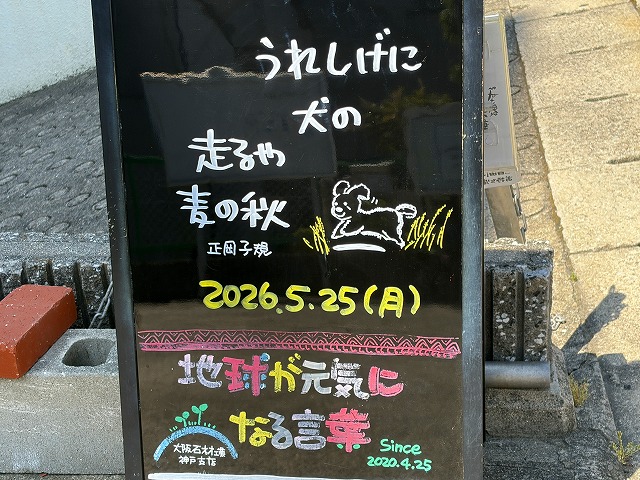 うれしげに
犬の
走るや
麦の秋
正岡子規
2026.5.25(月)
地球が元気に
なる言葉
大阪石材工業
神戸古店
Since
2020.4.25